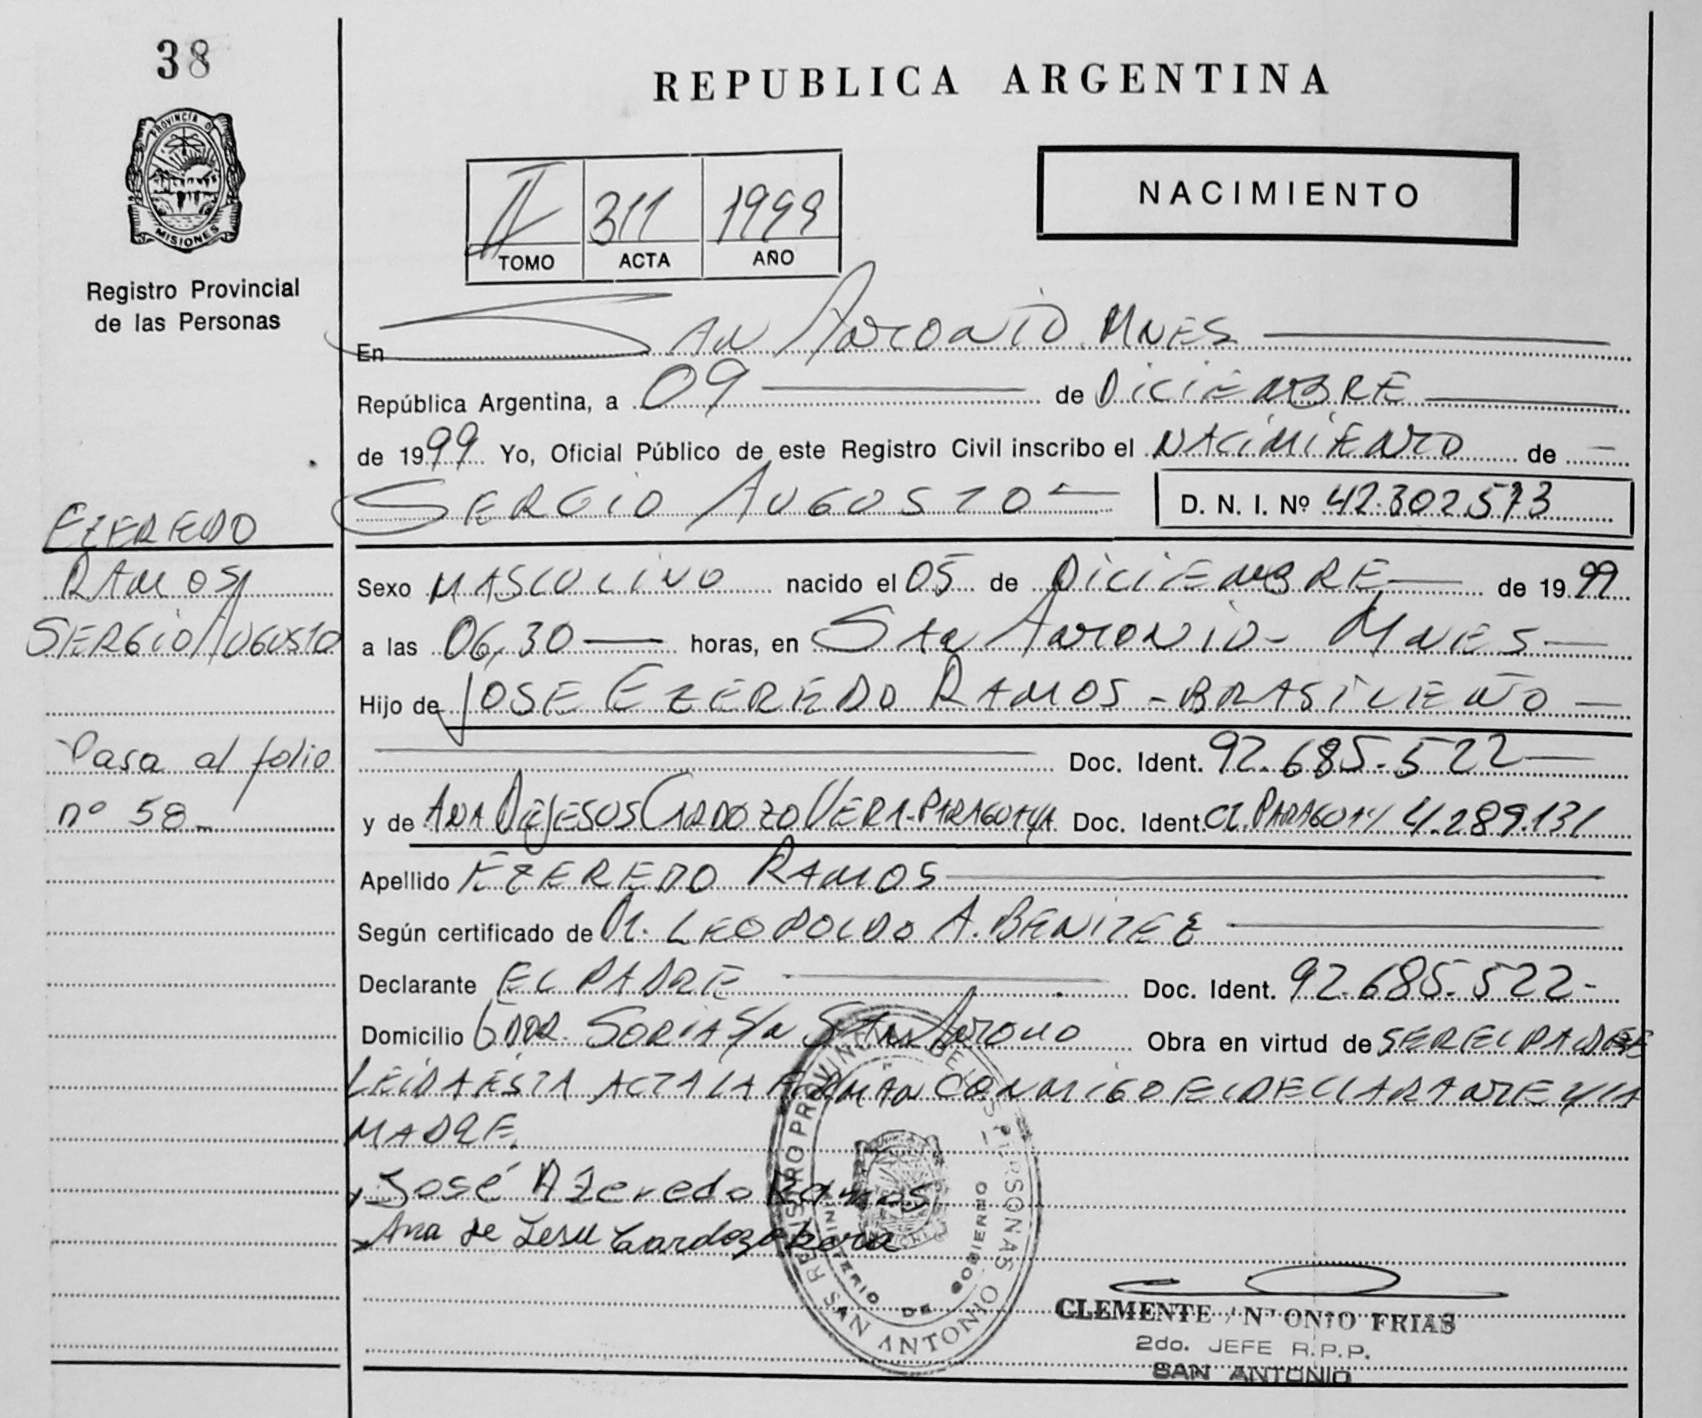 38
PROVINCIA D
MISIONES
Registro Provincial
de las Personas
REPUBLICA ARGENTINA
NACIMIENTO
II 311 1999
TOMO ACTA AÑO
En SAN ANTONIO MNES
República Argentina, a 09 de DICIEMBRE
de 1999 Yo, Oficial Público de este Registro Civil inscribo el NACIMIENTO de
SERGIO AUGUSTO D. N. I. Nº 42.302.573
EZEREDO
RAMOS
SERGIO AUGUSTO
Sexo MASCULINO nacido el 05 de DICIEMBRE de 1999
a las 06,30 horas, en SAN ANTONIO - MNES
Hijo de JOSE EZEREDO RAMOS - BRASILEÑO
Doc. Ident. 92.685.522
Pasa al folio
nº 58-
y de ANA DEJESUS CARDOZO VERA-PARAGUAYA Doc. Ident. CI. PARAGUAY 4.289.131
Apellido EZEREDO RAMOS
Según certificado de Dr. LEOPOLDO A. BENITEZ
Declarante EL PADRE Doc. Ident. 92.685.522-
Domicilio GDOR. SORIA S/N SAN ANTONIO Obra en virtud de SER EL PADRE
LEIDA ESTA ACTA LA FIRMAN CONMIGO EL DECLARANTE Y LA
MADRE.
José Azeredo Ramos
Ana de Jesu Cardozo bera
REGISTRO PROVINCIAL DE LAS PERSONAS
MINISTERIO DE GOBIERNO
SAN ANTONIO
CLEMENTE NTONIO FRIAS
2do. JEFE R.P.P.
SAN ANTONIO